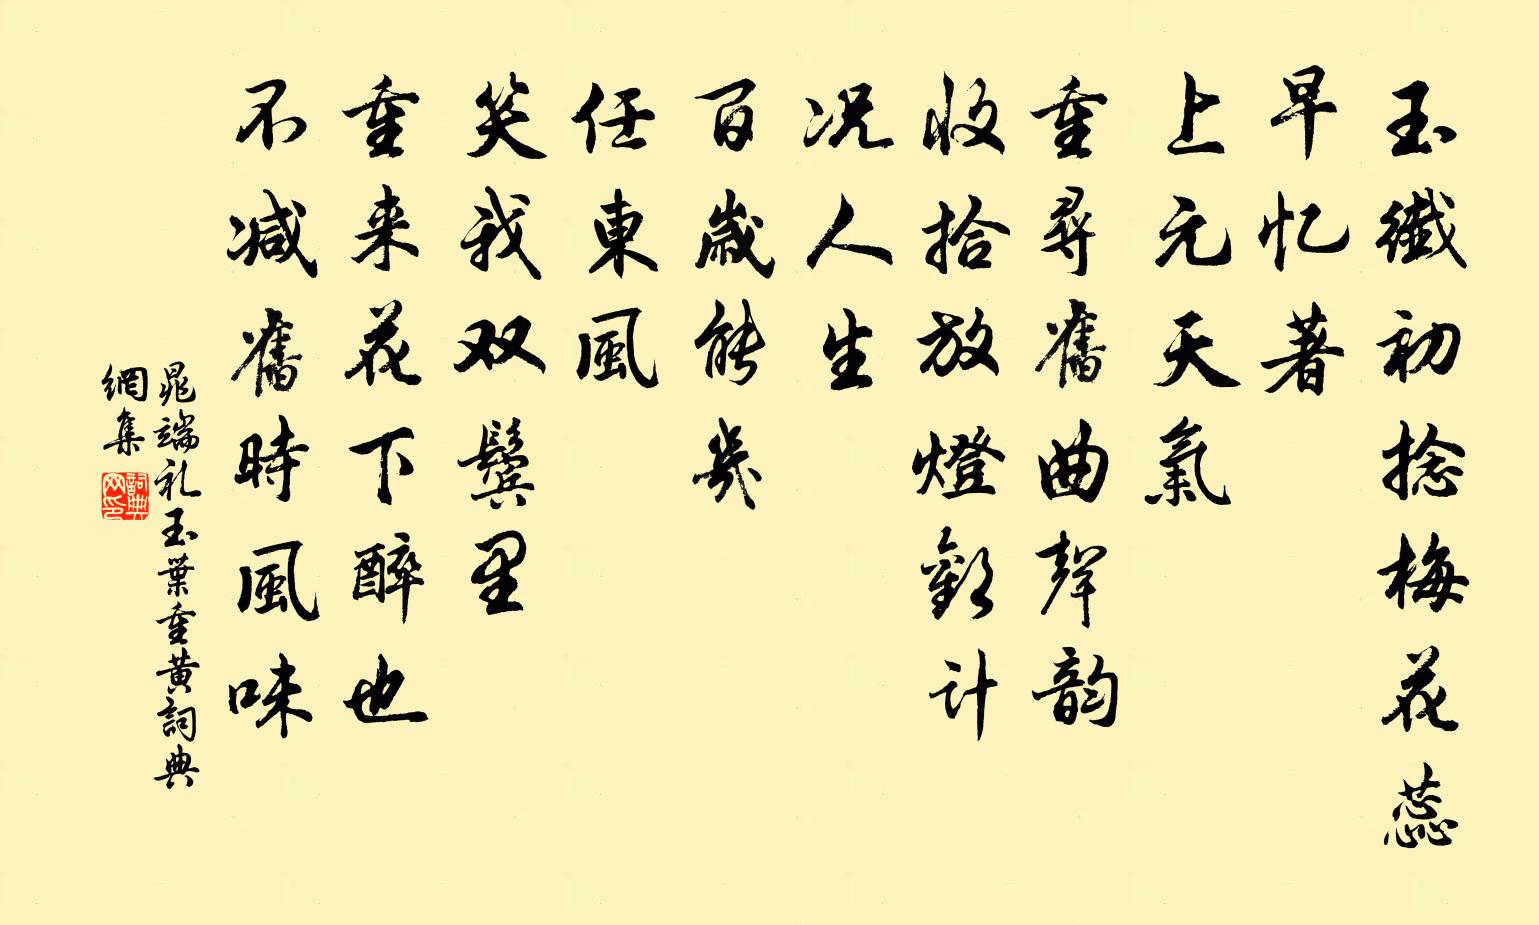 玉纖初捻梅花蕊
早忆著
上元天氣
重尋舊曲聲韵
收拾放燈歡计
况人生
百歲能幾
任東風
笑我双鬓里
重来花下醉也
不减舊時風味
晁端礼玉葉重黄詞典
網集
詞典网印